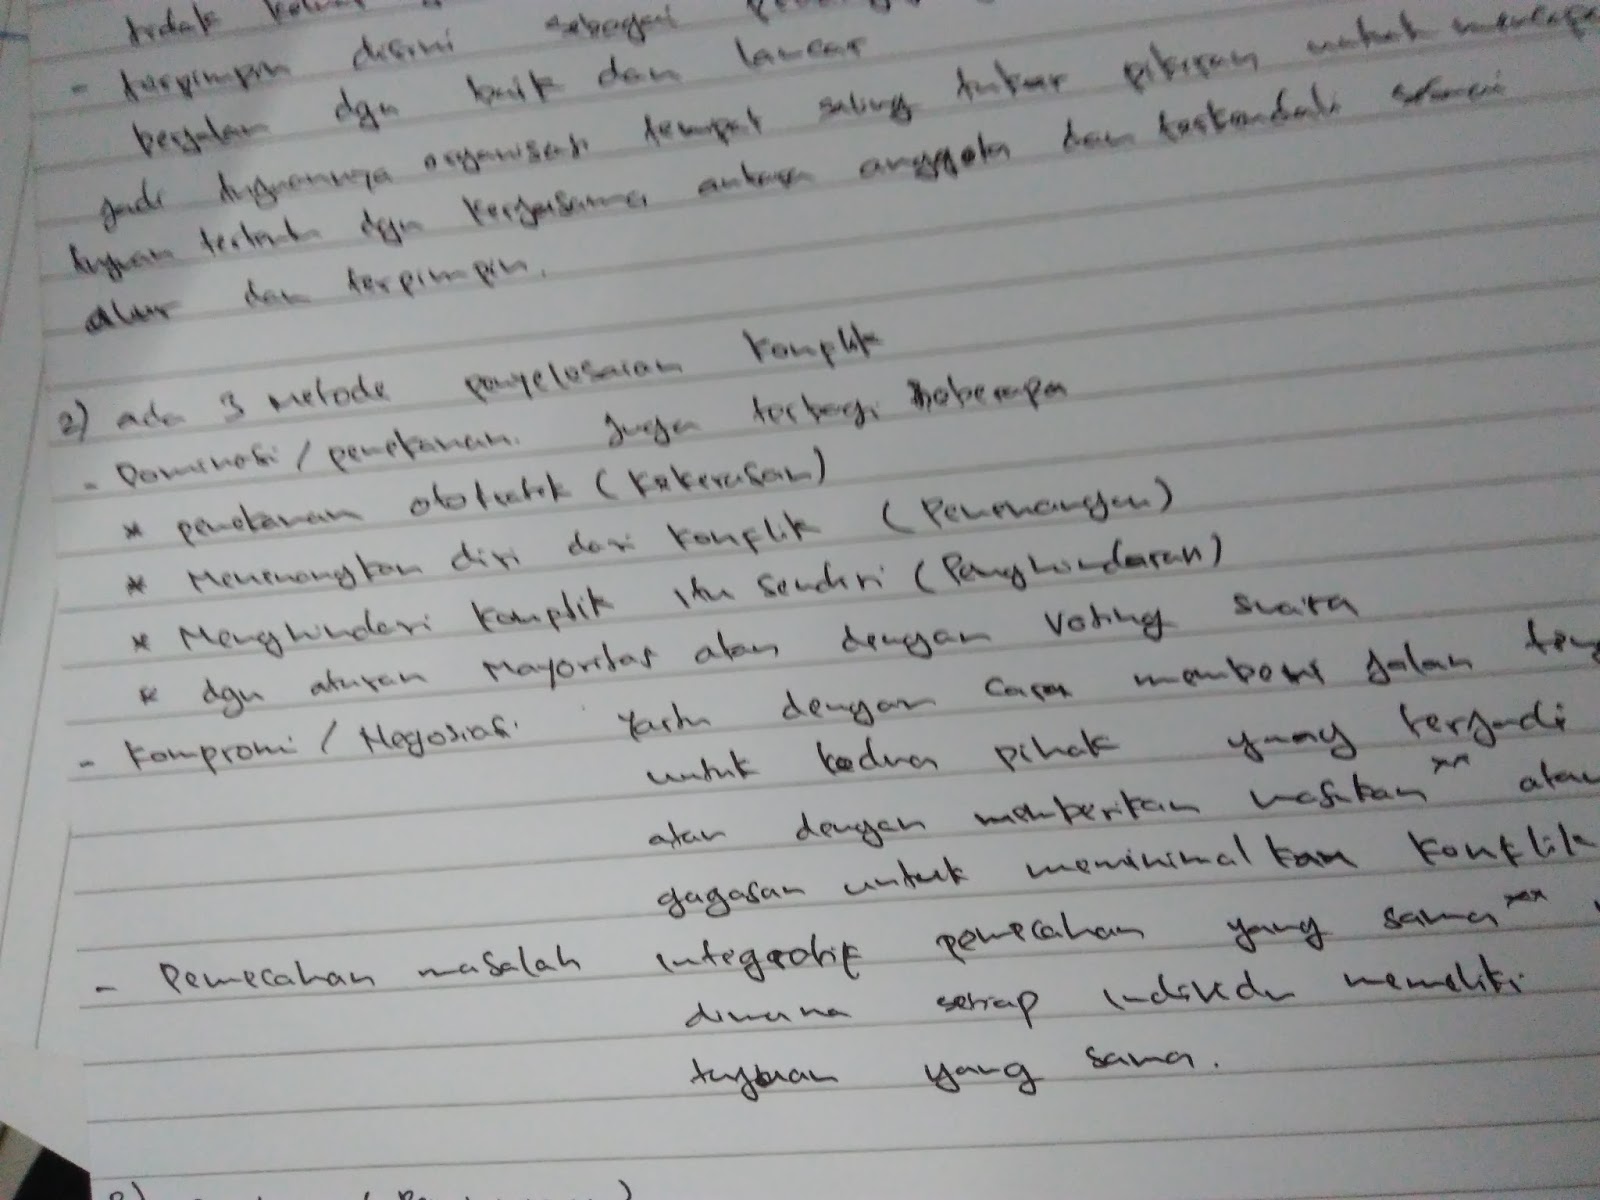 tidak
- terpimpin disini sebagai
berjalan dgn baik dan lancar
jadi tujuannya organisasi tempat saling tukar pikiran untuk
tujuan tertentu dgn kerjasama antara anggota dan terkendali
alur dan terpimpin.
2) ada 3 metode penyelesaian konplik
- Dominasi / penekanan. juga terbagi beberapa
* penekanan otokratik (Kekerasan)
* Menenangkan diri dari konflik (Penenangan)
* Menghindari konplik itu sendiri (Penghindaran)
* dgn aturan Mayoritas atau dengan Voting suara
- Kompromi / Negosiasi. yaitu dengan cara memberi jalan
untuk kedua pihak yang terjadi
atau dengan memberikan masukan" atau
gagasan untuk meminimalkan konflik
- Pemecahan masalah integratif pemecahan yang sama"
dimana setiap individu memeliki
tujuan yang sama.